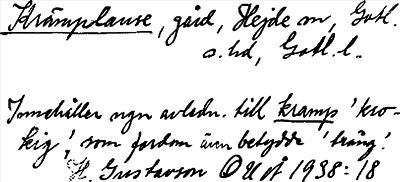 Krämplause, gård, Hejde sn, Gotl.
s. hd, Gotl. l.
Innehåller ngn avledn. till kramp 'kro-
kig', som fordom även betydde 'trång'.
H. Gustavson OUÅ 1938: 18